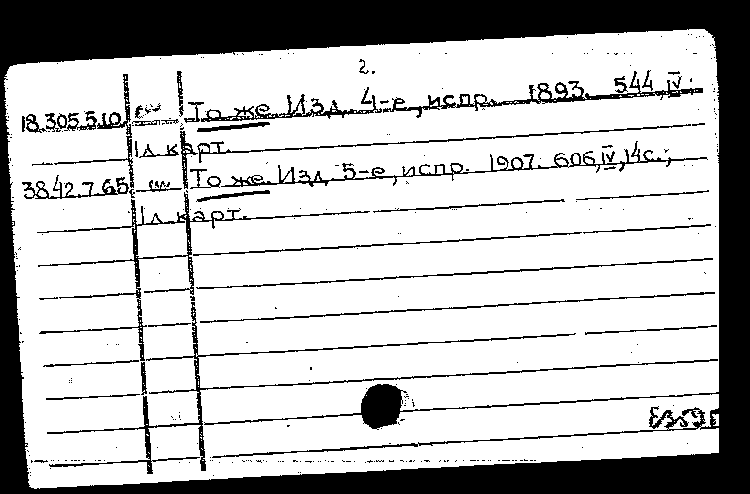 2.
18.305.5.10. То же Изд. 4-е, испр. 1893. 544, IV.
1 л. карт.
38.42.7.65. То же. Изд. 5-е, испр. 1907. 606, IV, 14с.;
1 л. карт.